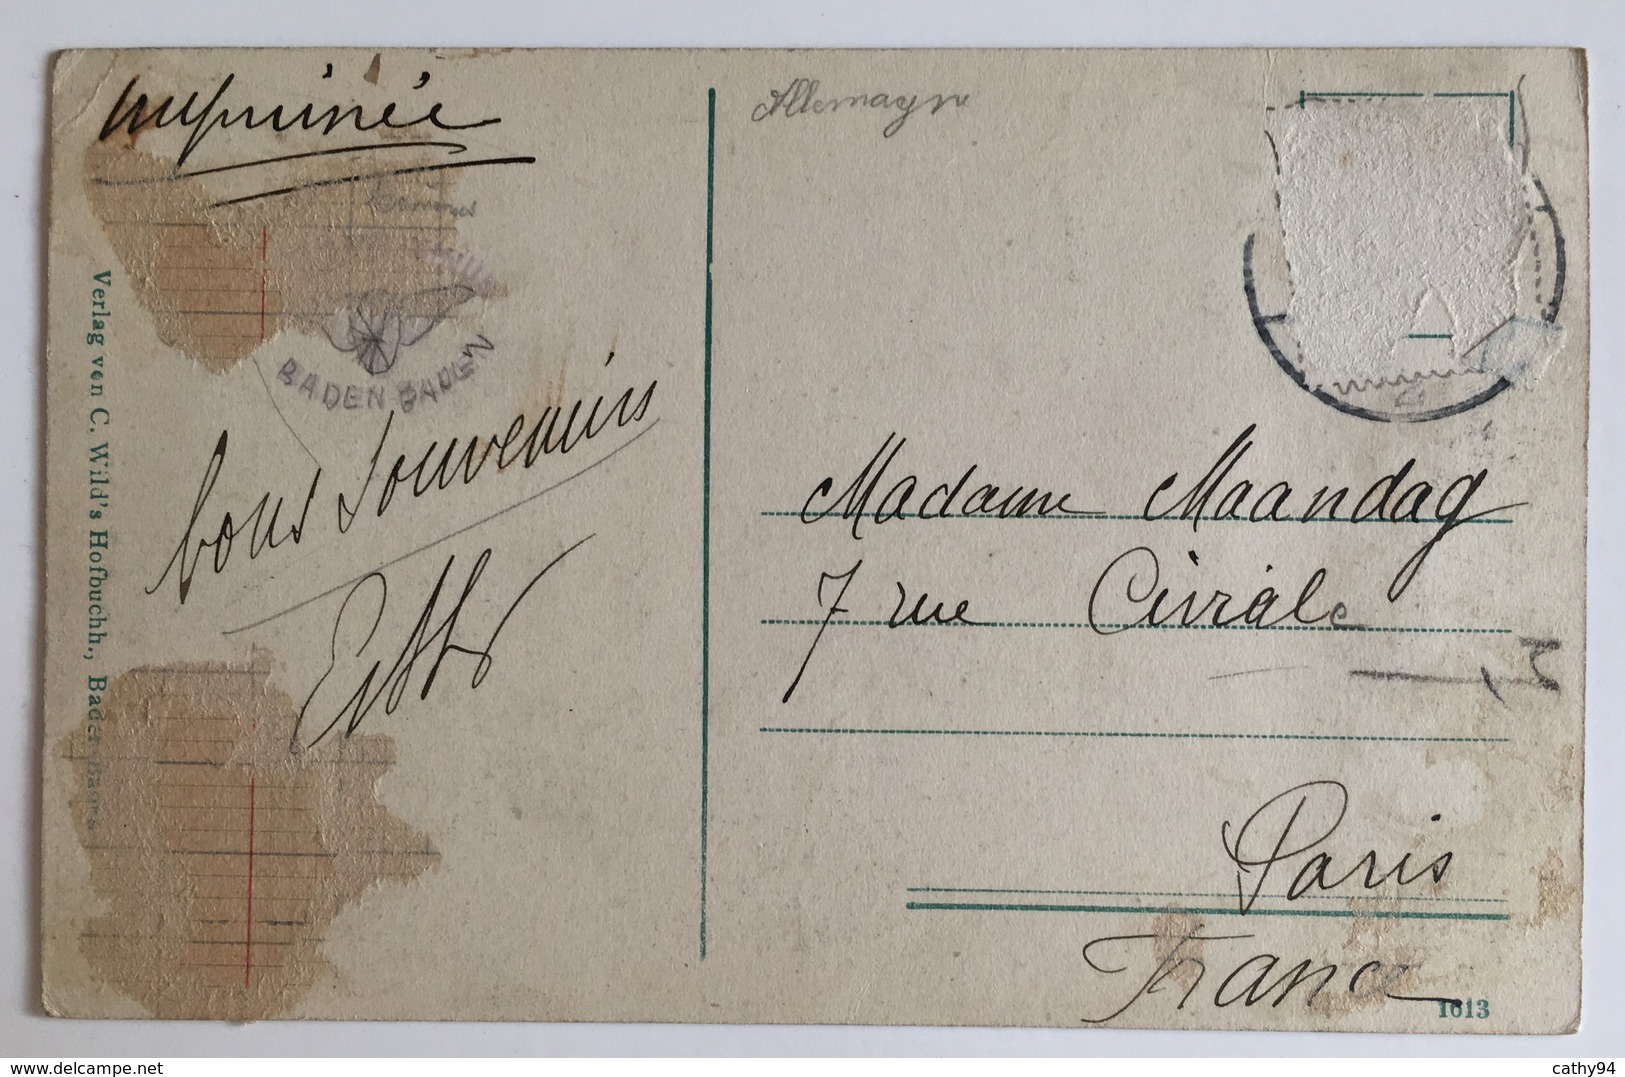 imprimée
Allemagne
BADEN BADEN
Verlag von C. Wild's Hofbuchh., Baden-Baden
bons souvenirs
Esther
Madame Maandag
7 rue Civiale
Paris
France
1613
cathy94